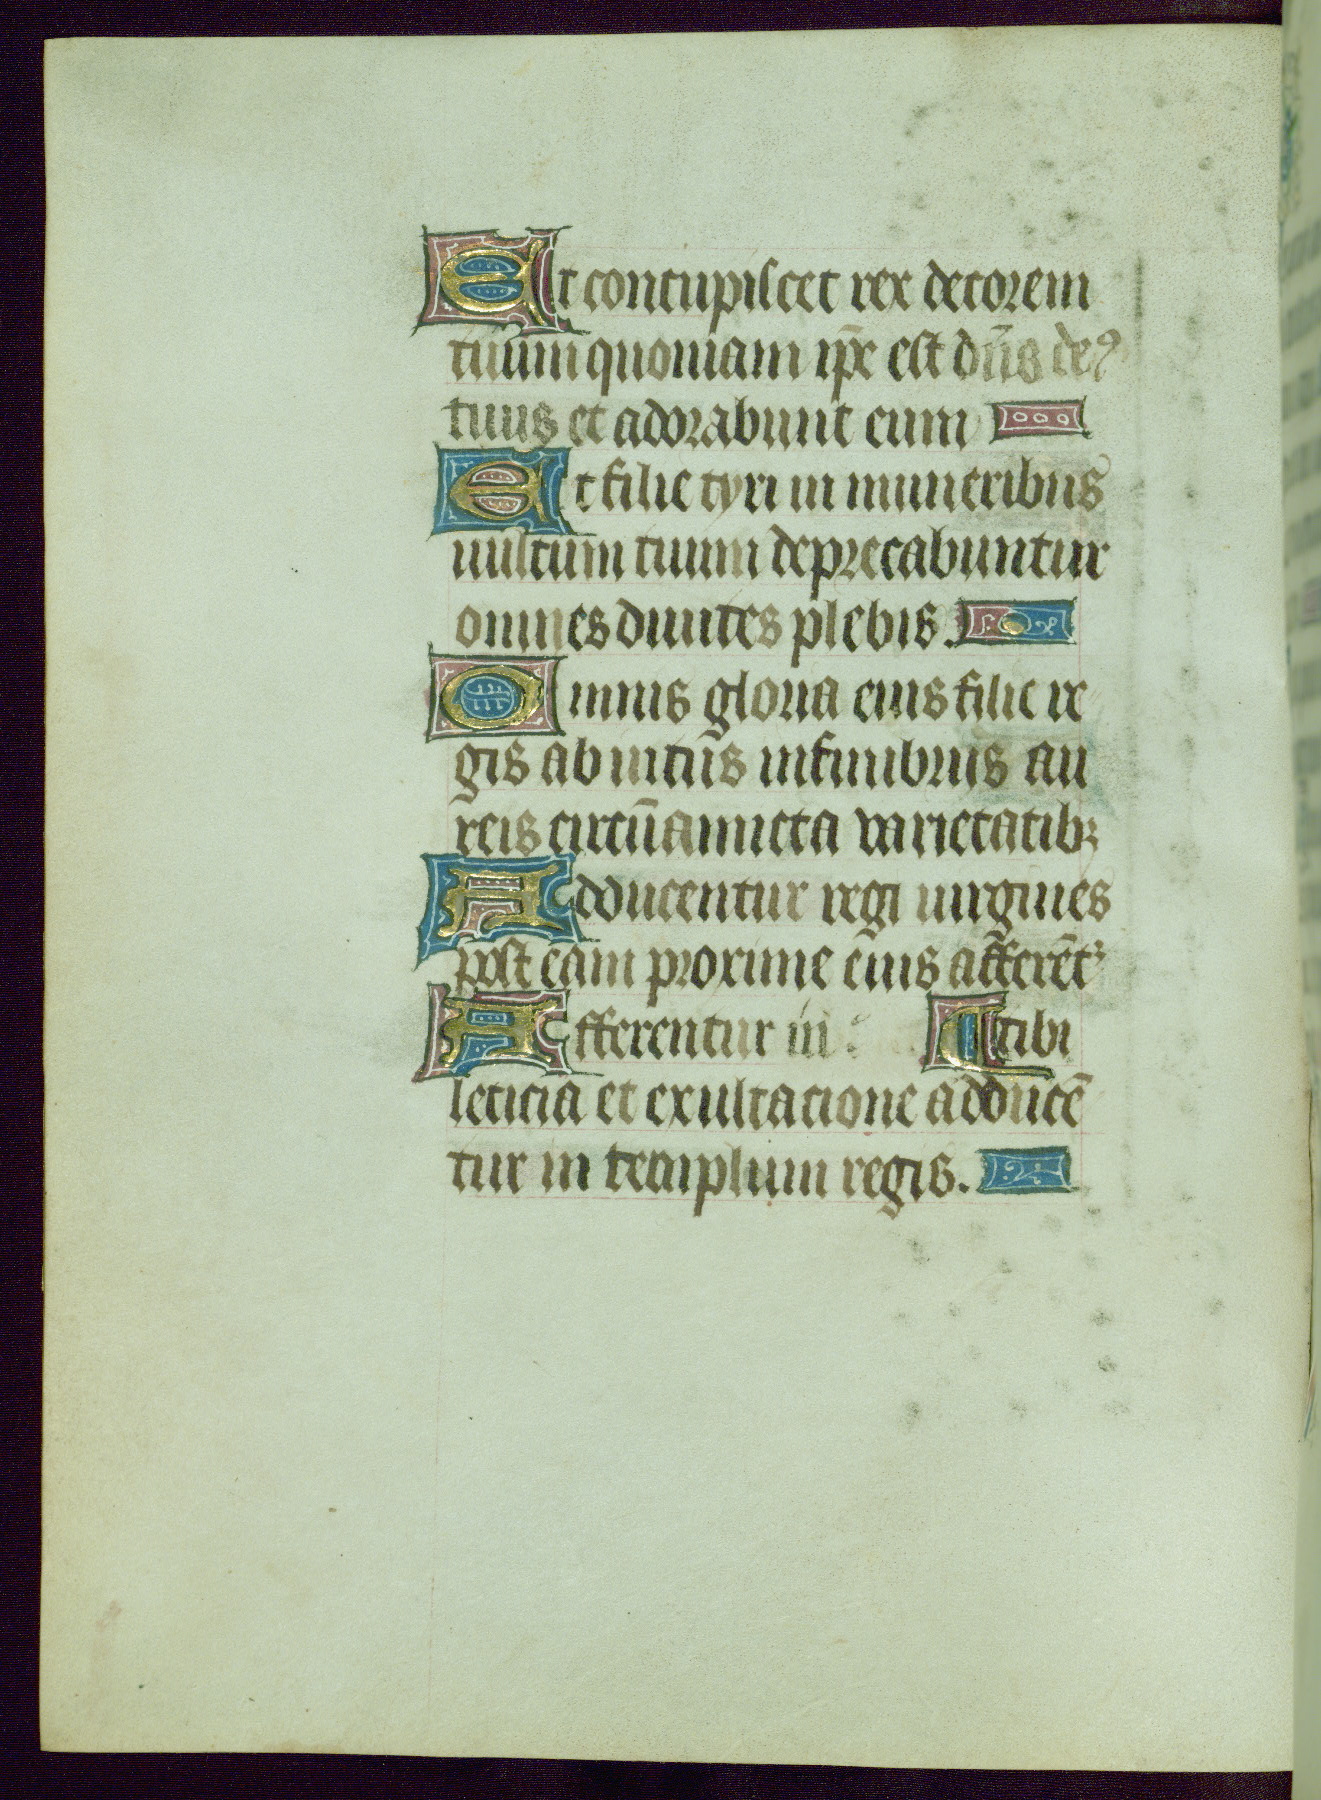 Et concupiscet rex decorem
tuum quoniam ip̄e est dn̄s deꝰ
tuus et adorabunt eum
Et filie tyri in muneribus
uultum tuum deprecabuntur
omnes diuites plebis.
Omnis gloria eius filie re
gis ab intus in fimbriis au
reis circūamicta varietatibꝫ
Adducentur regi uirgines
post eam proxime eius afferēt᷑
Afferentur in tibi
leticia et exultacione adducē
tur in templum regis.